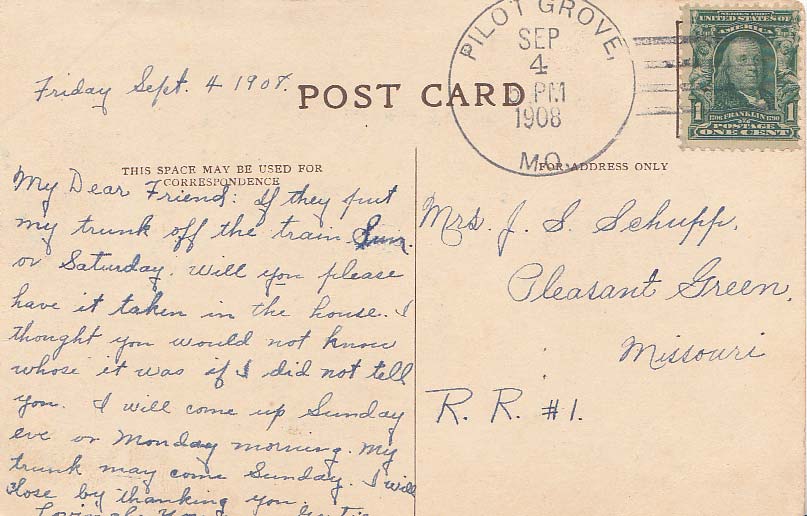 PILOT GROVE,
SEP
4
5 PM
1908
MO.
SERIES 1902
UNITED STATES OF
AMERICA
1 1
1706 FRANKLIN 1790
POSTAGE
ONE CENT
Friday Sept. 4 1908.
POST CARD
THIS SPACE MAY BE USED FOR
CORRESPONDENCE
FOR ADDRESS ONLY
My Dear Friend: If they put
my trunk off the train Sun.
or Saturday. Will you please
have it taken in the house. I
thought you would not know
whose it was if I did not tell
you. I will come up Sunday
eve or Monday morning. My
trunk may come Sunday. I will
close by thanking you.
Lovingly Your
Mrs. J. S. Schupp.
Pleasant Green,
Missouri
R. R. #1.